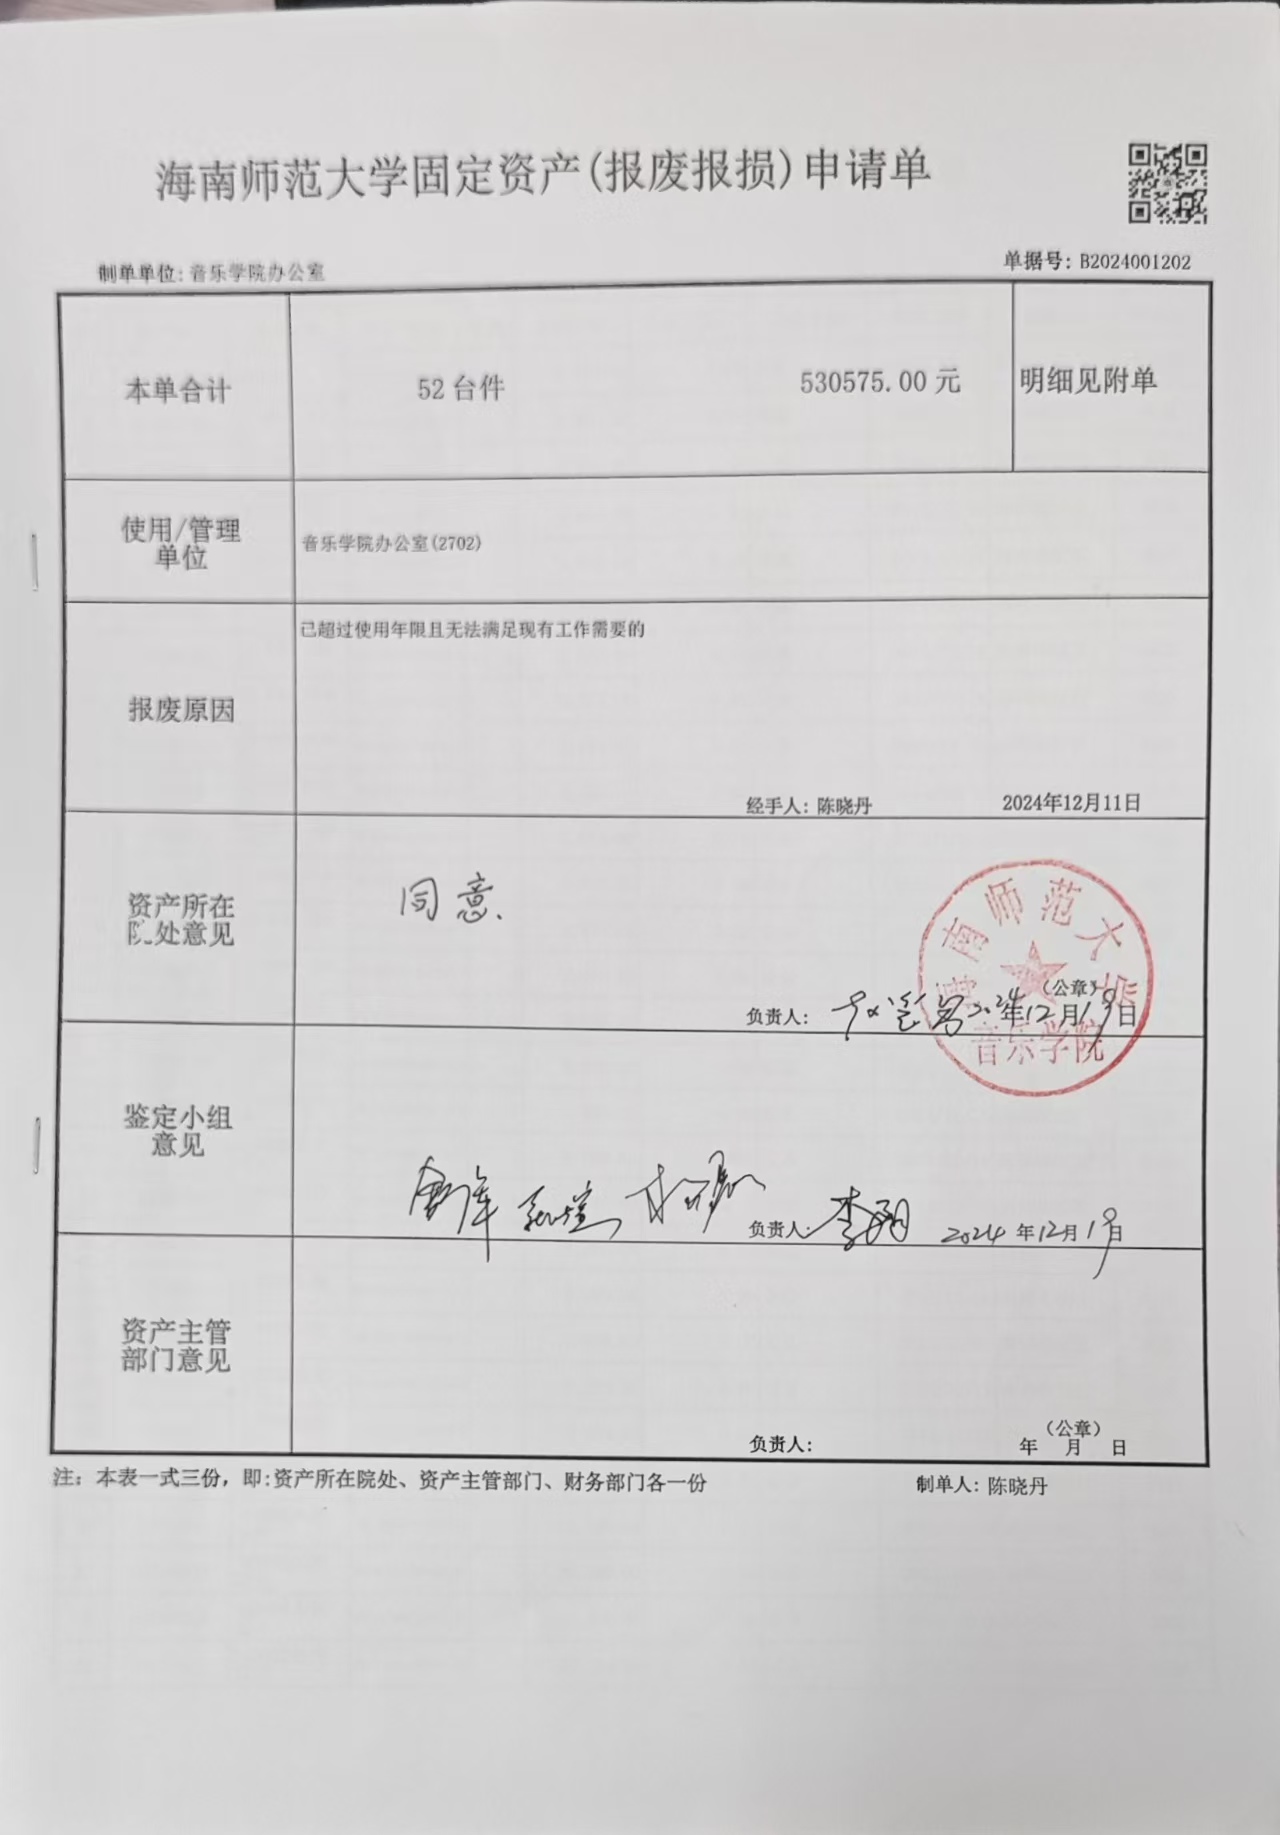 海南师范大学固定资产(报废报损)申请单
制单单位: 音乐学院办公室
单据号: B2024001202
本单合计
52 台件
530575.00 元
明细见附单
使用/管理
单位
音乐学院办公室(2702)
报废原因
已超过使用年限且无法满足现有工作需要的
经手人: 陈晓丹
2024年12月11日
资产所在
院处意见
同意
海南师范大学
音乐学院
(公章)
负责人:
2024年12月19日
鉴定小组
意见
负责人: 李翔
2024年12月19日
资产主管
部门意见
(公章)
负责人:
年 月 日
注: 本表一式三份, 即:资产所在院处、资产主管部门、财务部门各一份
制单人: 陈晓丹